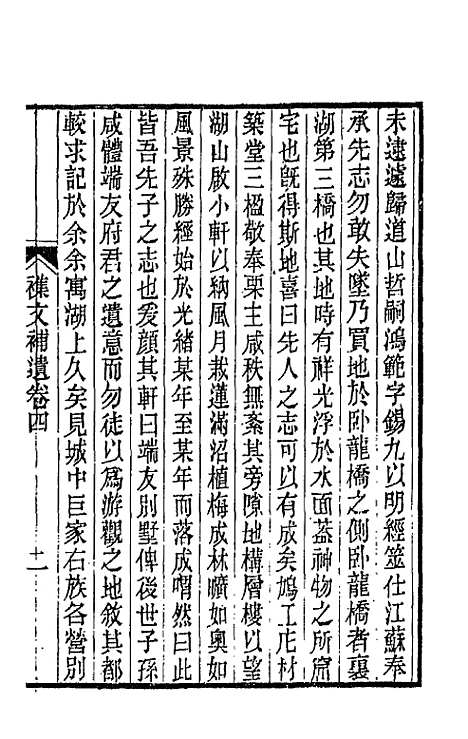 未逮遽歸道山哲嗣鴻範字錫九以明經筮仕江蘇奉
承先志勿敢失墜乃買地於臥龍橋之側臥龍橋者裏
湖第三橋也其地時有祥光浮於水面蓋神物之所窟
宅也旣得斯地喜曰先人之志可以有成矣鳩工庀材
築堂三楹敬奉栗主咸秩無紊其旁隙地構層樓以望
湖山啟小軒以納風月栽蓮滿沼植梅成林曠如奧如
風景殊勝經始於光緒某年至某年而落成喟然曰此
皆吾先子之志也爰顏其軒曰端友別墅俾後世子孫
咸體端友府君之遺意而勿徒以爲游觀之地敘其都
較求記於余余寓湖上久矣見城中巨家右族各營別
襍文補遺卷四
十二